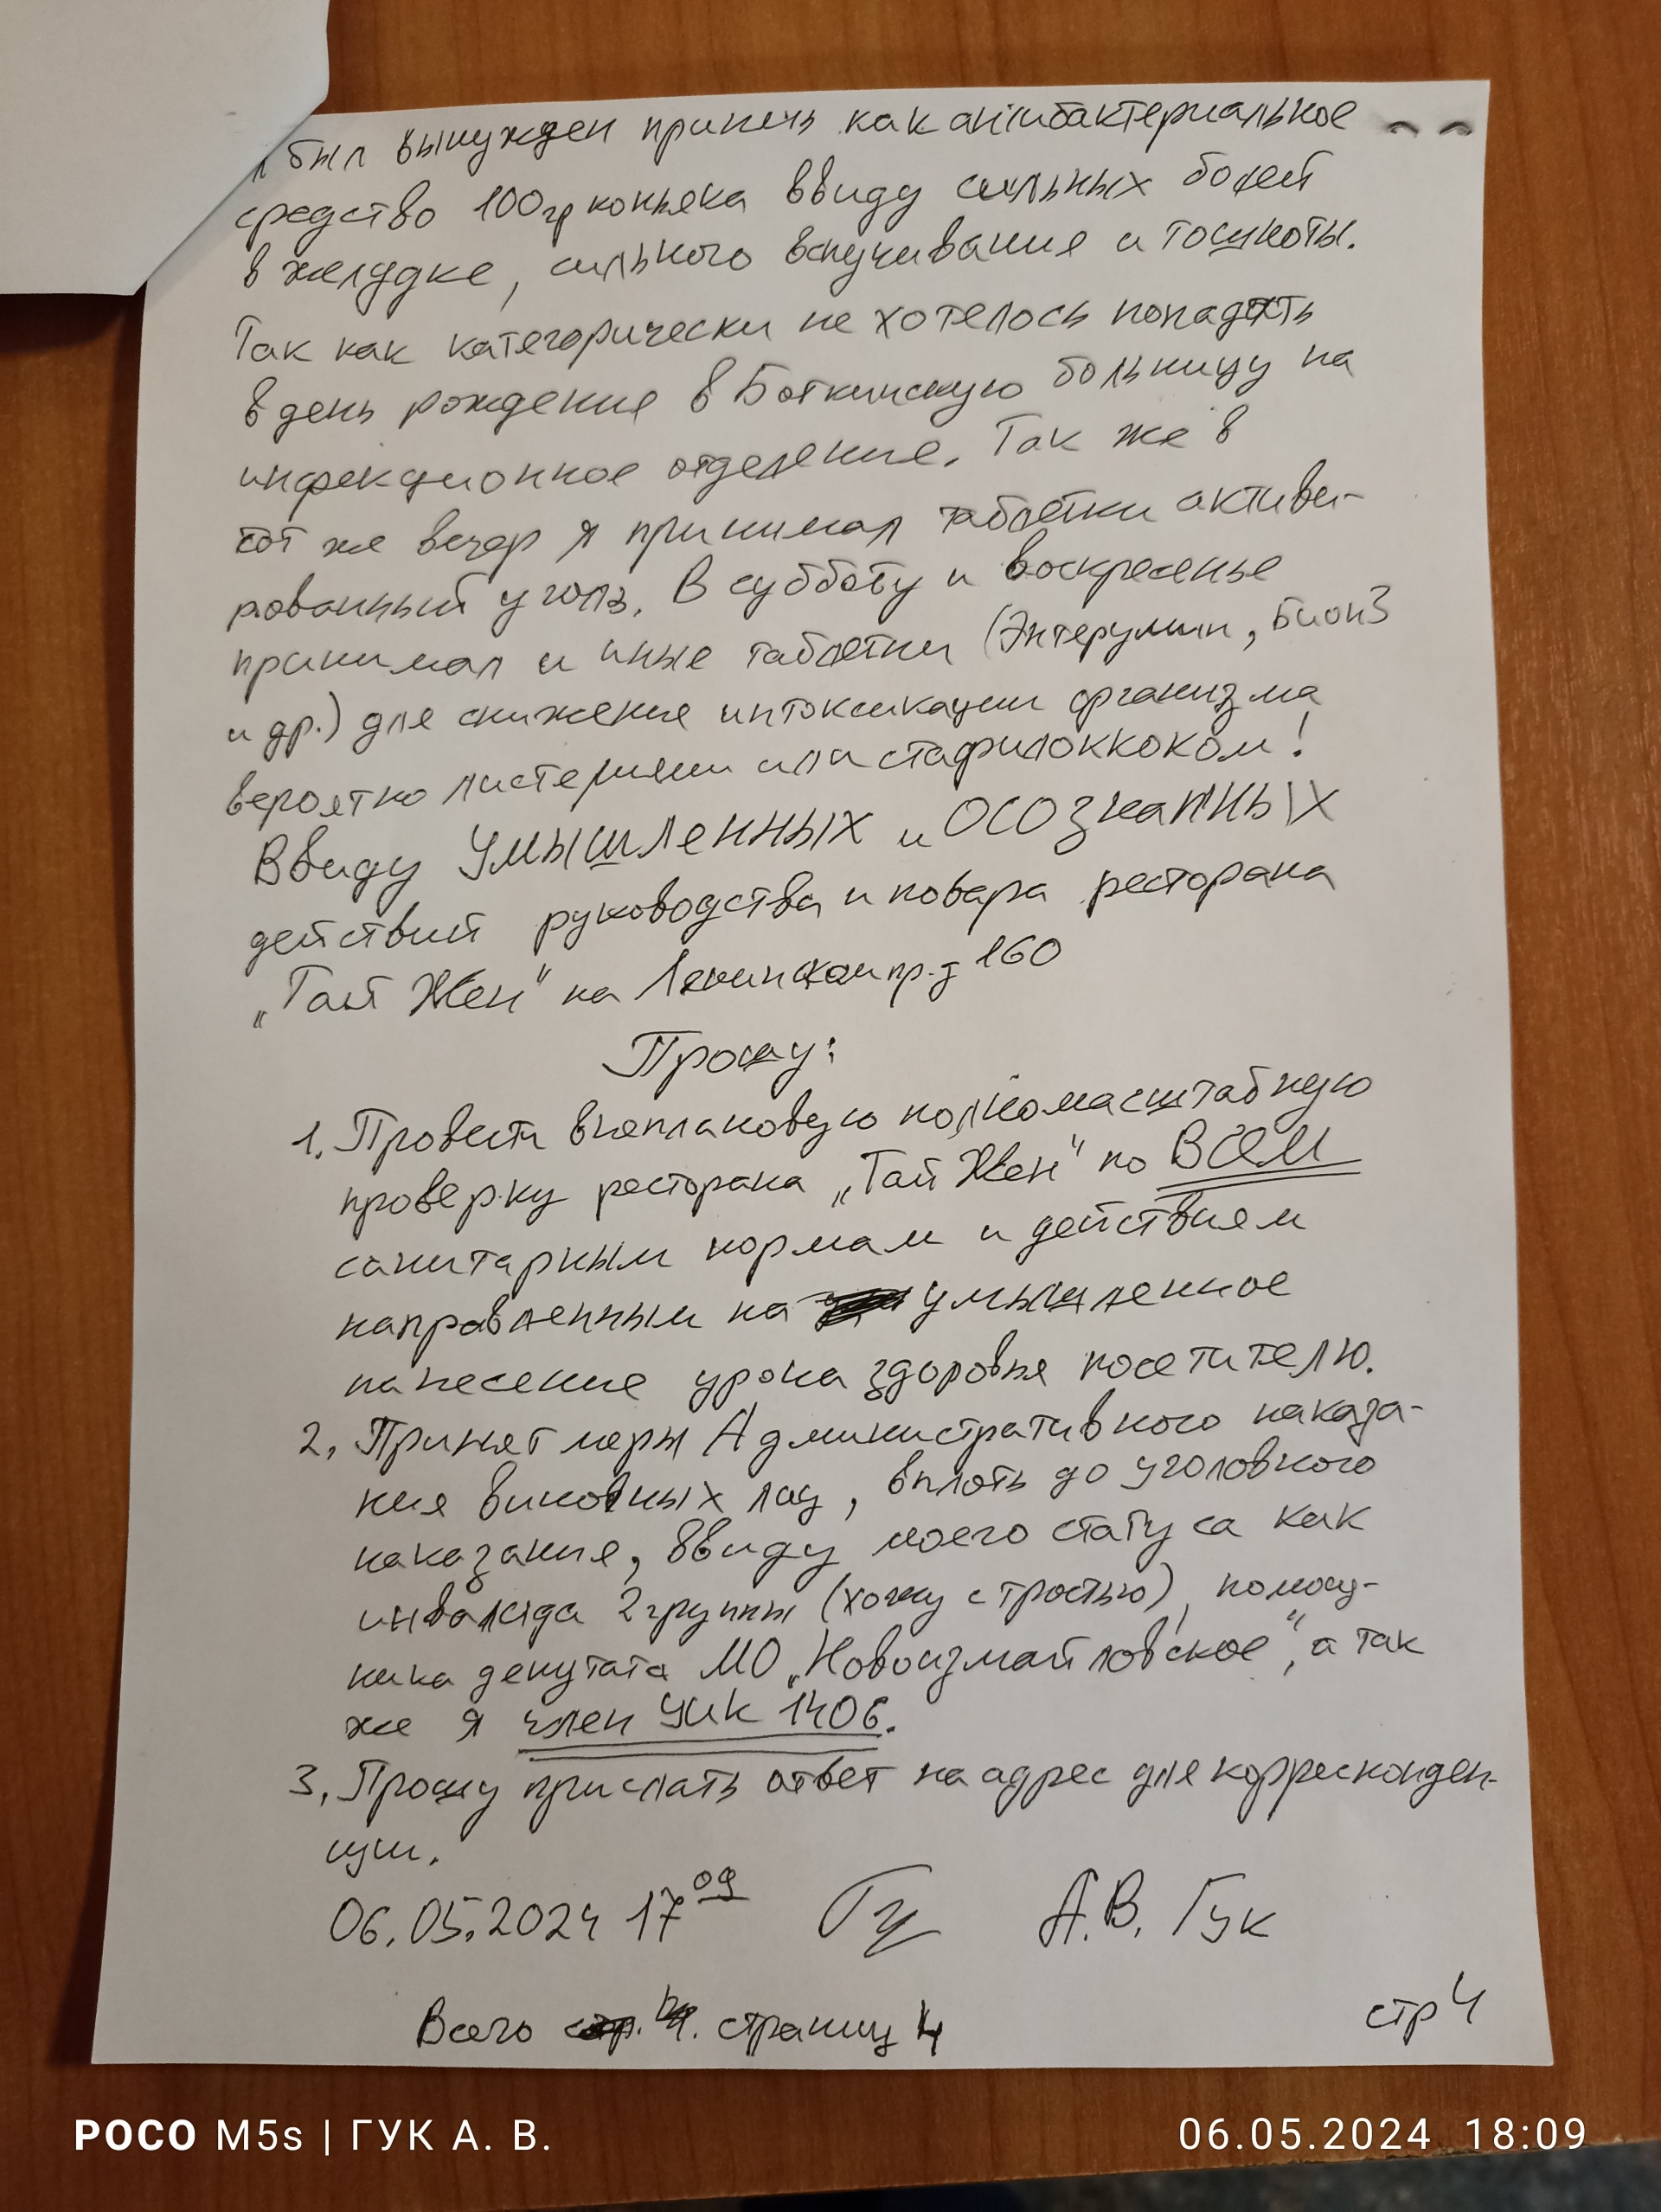 я был вынужден принять как антибактериальное
средство 100гр коньяка ввиду сильных болей
в желудке, сильного вспучивания и тошноты.
Так как категорически не хотелось попадать
в день рождения в Боткинскую больницу на
инфекционное отделение. Так же в
тот же вечер я принимал таблетки активи-
рованный уголь. В субботу и воскресенье
принимал и иные таблетки (Энтерумин, Бион3
и др.) для снижения интоксикации организма
вероятно листериями или стафилоккоком!
Ввиду УМЫШЛЕННЫХ и ОСОЗНАННЫХ
действий руководства и повара ресторана
„Тай Жен" на Ленинском пр. д 160
Прошу:
1. Провести внеплановую полномасштабную
проверку ресторана „Тай Жен" по ВСЕМ
санитарным нормам и действиям
направленным на умышленное
нанесение урона здоровья посетителю.
2. Принят меры Административного наказа-
ния виновных лиц, вплоть до уголовного
наказания, ввиду моего статуса как
инвалида 2 группы (хожу с тростью), помощ-
ника депутата МО „Новоизмайловское", а так
же я член УИК 1406.
3. Прошу прислать ответ на адрес для корреспонден-
ции.
06.05.2024 17 09 А.В. Гук
Всего страниц 4
стр 4
POCO M5s | ГУК А. В.
06.05.2024 18:09